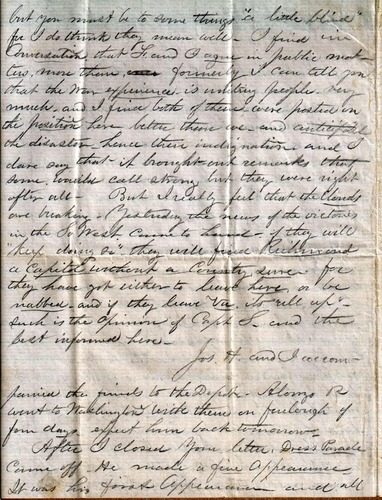 but you must be to some things "a little blind"
for I do think they mean well - I find in
Conversation that S. and I agree in public mat-
ters, more than formerly I can tell you
that the War experience is uniting people very
much, and I find both of them were posted on
the position here better than we - and anticipated
the disaster - hence their indignation and I
dare say that it brought out remarks that
some would call strong but they were right
after all - But I really feel that the clouds
are breaking. Yesterday the news of the victories
in the So West came to hand - if they will
"keep doing so" they will find Richmond
a Capitol without a Country, sure - for
they have got either to leave here or be
nabbed - and if they leave Va. its "all up" -
such is the Opinion of Capt S. and the
best informed here -
Jos. H. and I accom-
panied the friends to the Depot - Alonzo R
went to Washington with them on furlough of
four days, expect him back tomorrow -
After I closed Your letter, Dress Parade
Came off. He made a fine Appearance
It was his first Appearance and all